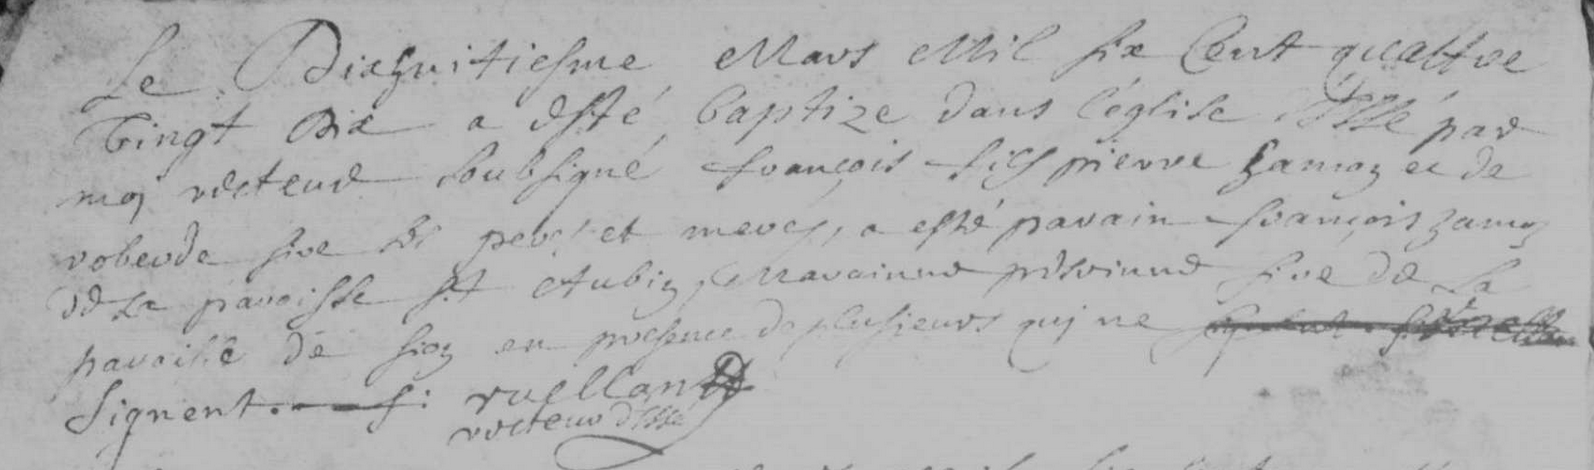 Le Dixhuitiesme Mars Mil six Cent quattre
Vingt Dix a esté baptize dans l'église d'Essé par
moy recteur soubsigné françois fils pierre Lamoy et de
roberde sire ses peres et meres, a esté parain françois Lamoy
de La paroisse st Aubin, Maraine perrinne sire de La
paroisse de sion en presence de plusieurs qui ne
signent. f: ruellan
recteur d'Essé